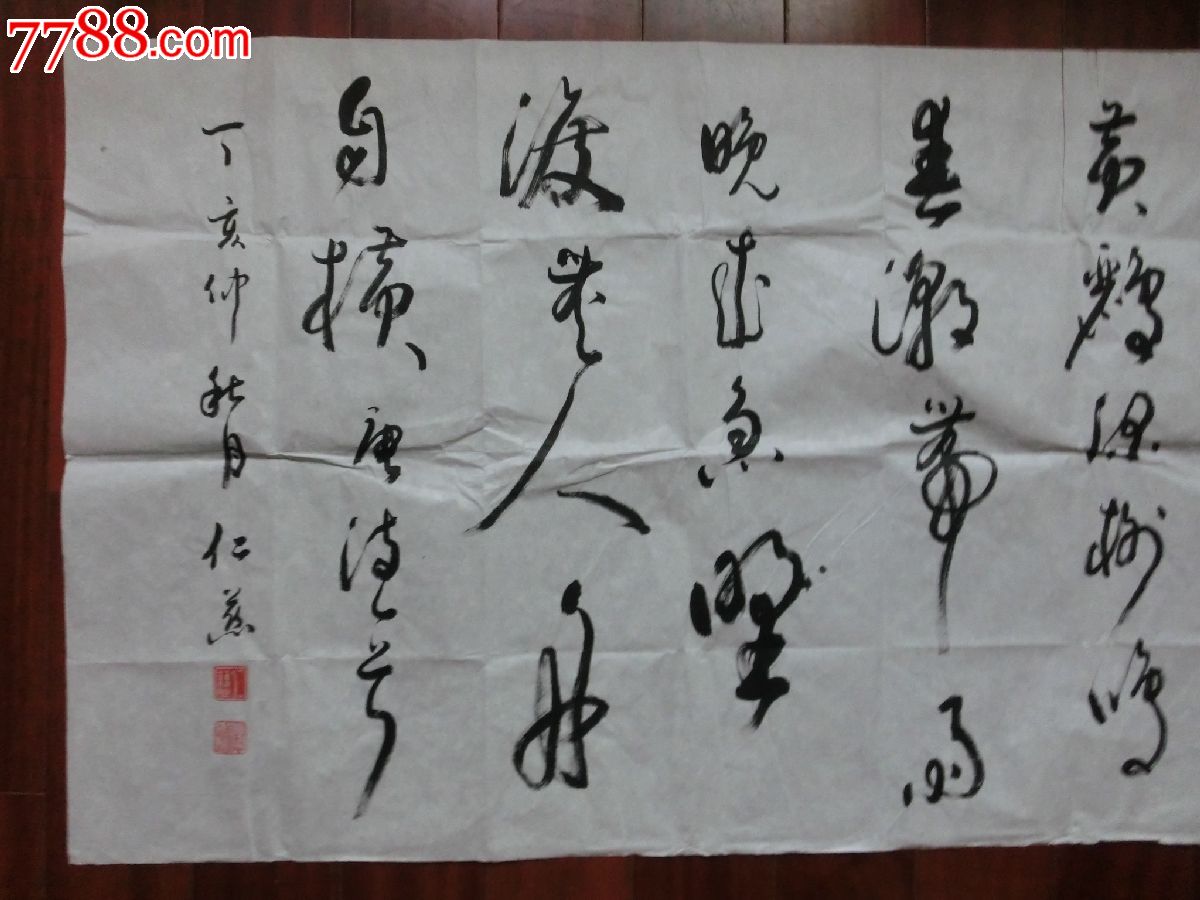 7788.com
黄鹂深树鸣
春潮带雨
晚来急野
渡无人舟
自横唐诗一首
丁亥仲秋月仁慈